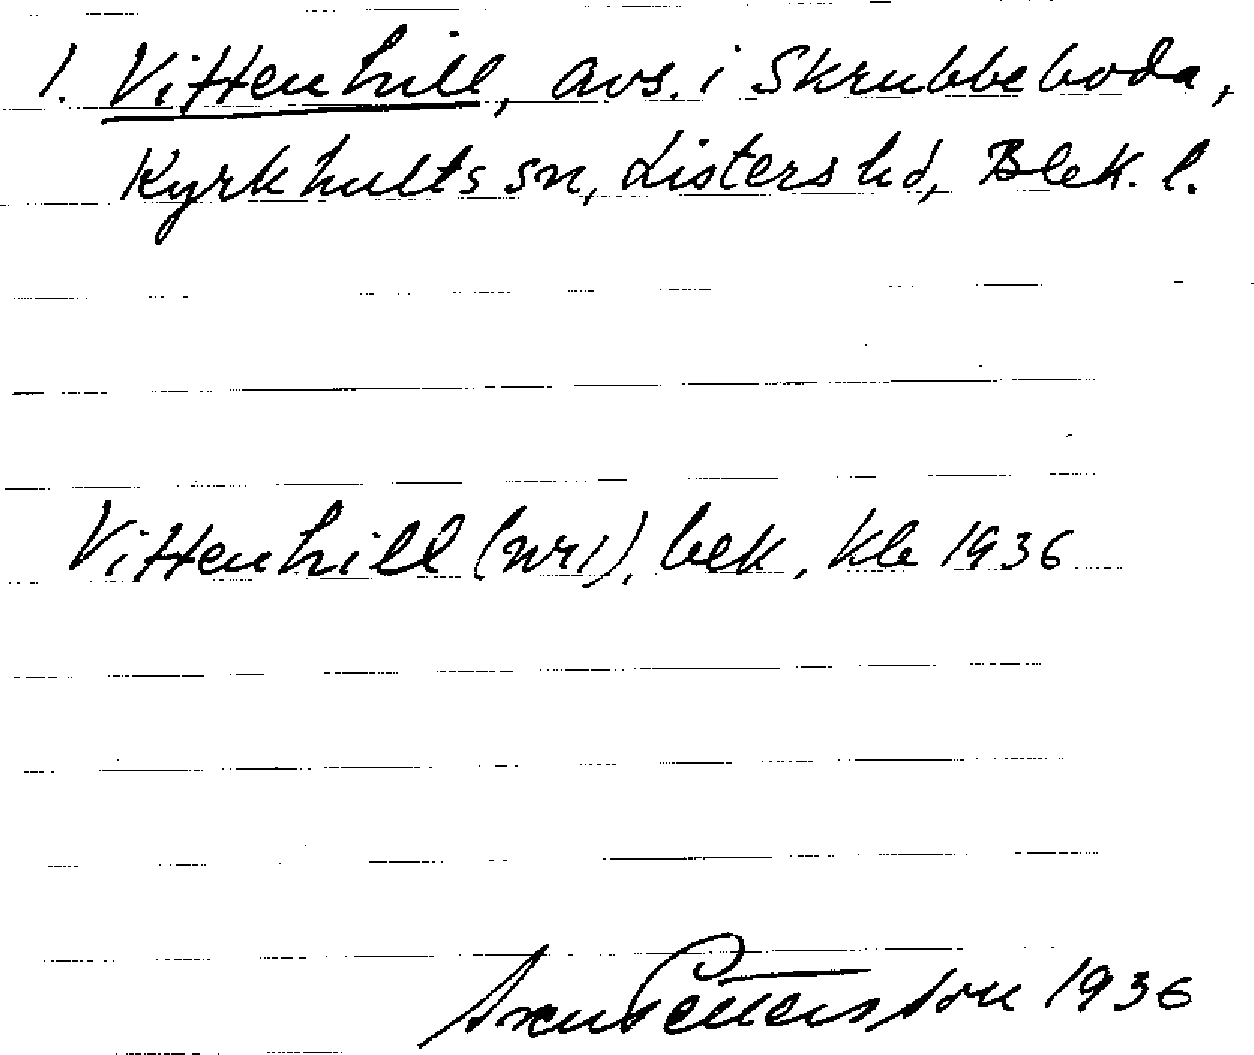 1. Vittenhill, avs. i Skrubbeboda,
Kyrkhults sn, Listers hd, Blek. l.
Vittenhill (nr 1), bek, Kb 1936
Axel Pettersson 1936